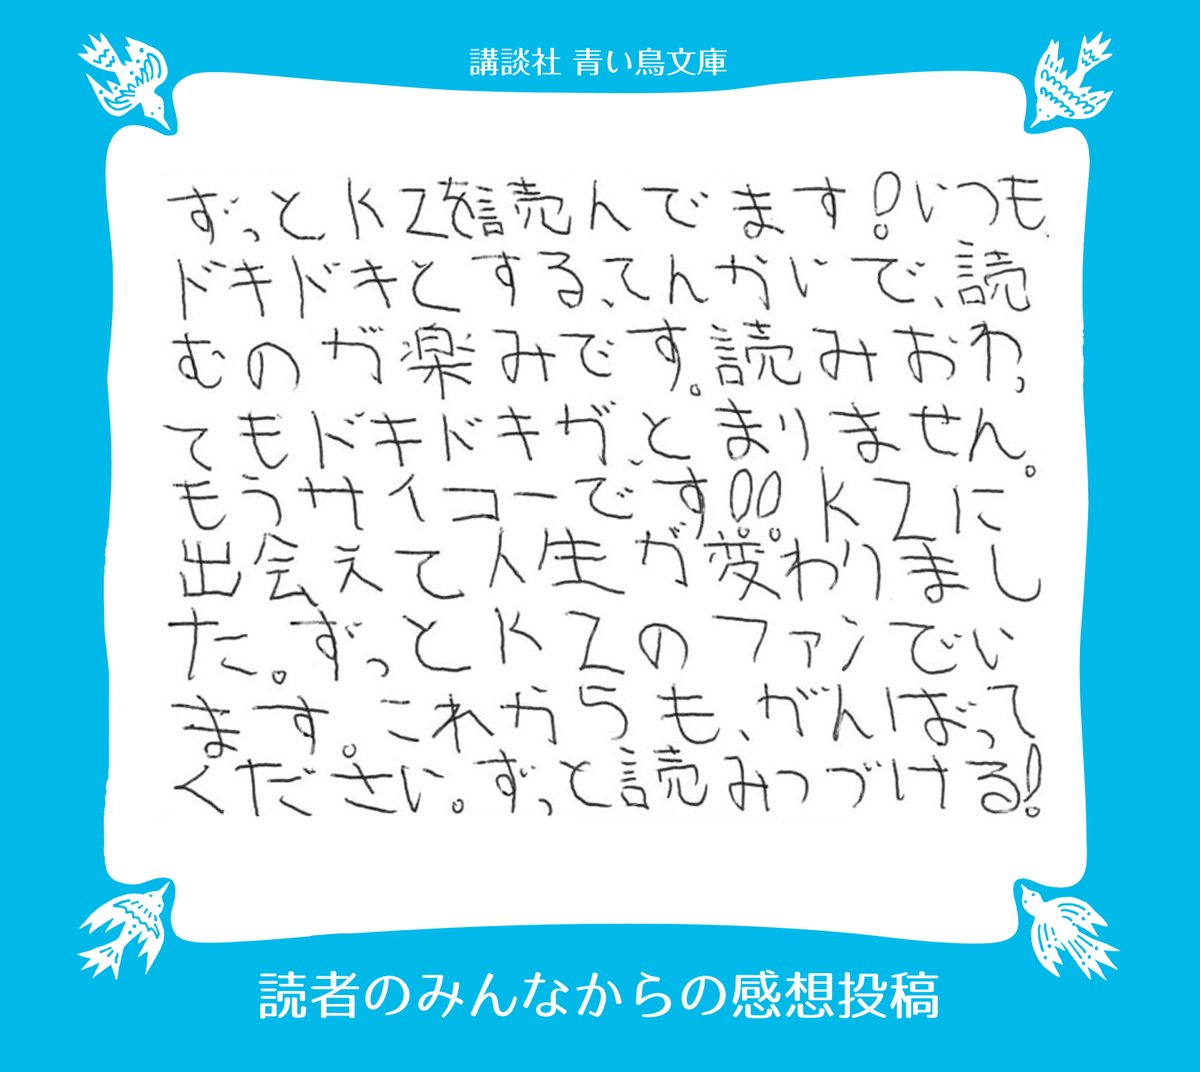 講談社 青い鳥文庫
ずっとKZを読んでます!いつも
ドキドキとする、てんかいで、読
むのが楽みです。読みおわっ
てもドキドキが、とまりません。
もうサイコーです!!KZに
出会えて人生が変わりまし
た。ずっとKZのファンでい
ます。これからも、がんばって
ください。ずっと読みつづける!
読者のみんなからの感想投稿